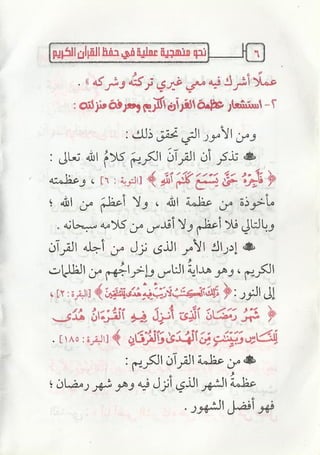 ٦ نحو منهجية عملية في حفظ القرآن الكريم
عملًا أشرك فيه معي غيري تركتُه وشركه » .
٢- استشعار عظمة القرآن الكريم ومعرفة منزلته :
ومن الأمور التي تحقق ذلك :
تذكر أن القرآنَ الكريمَ كلامُ الله تعالى :
﴿ فَأَجِرْهُ حَتَّىٰ يَسْمَعَ كَلَٰمَ ٱللَّهِ ﴾ [التوبة : ٦] ، وعظمته
مأخوذة من عظمة الله ، ولا أعظمَ من الله ؛
وبالتالي فلا أعظم ولا أقدس من كلامه سبحانه .
إدراك الأمر الذى نزل من أجله القرآن
الكريم ، وهو هدايةُ الناس وإخراجُهم من الظلمات
إلى النور : ﴿ ذَٰلِكَ ٱلْكِتَٰبُ لَا رَيْبَ فِيهِ هُدًى لِّلْمُتَّقِينَ ﴾ [البقرة : ٢] ،
﴿ شَهْرُ رَمَضَانَ ٱلَّذِىٓ أُنزِلَ فِيهِ ٱلْقُرْءَانُ هُدًى
لِّلنَّاسِ وَبَيِّنَٰتٍ مِّنَ ٱلْهُدَىٰ وَٱلْفُرْقَانِ ﴾ [البقرة : ١٨٥] .
من عظمة القرآن الكريم :
عظمةُ الشهر الذي أنزل فيه وهو شهر رمضان ؛
فهو أفضل الشهور .